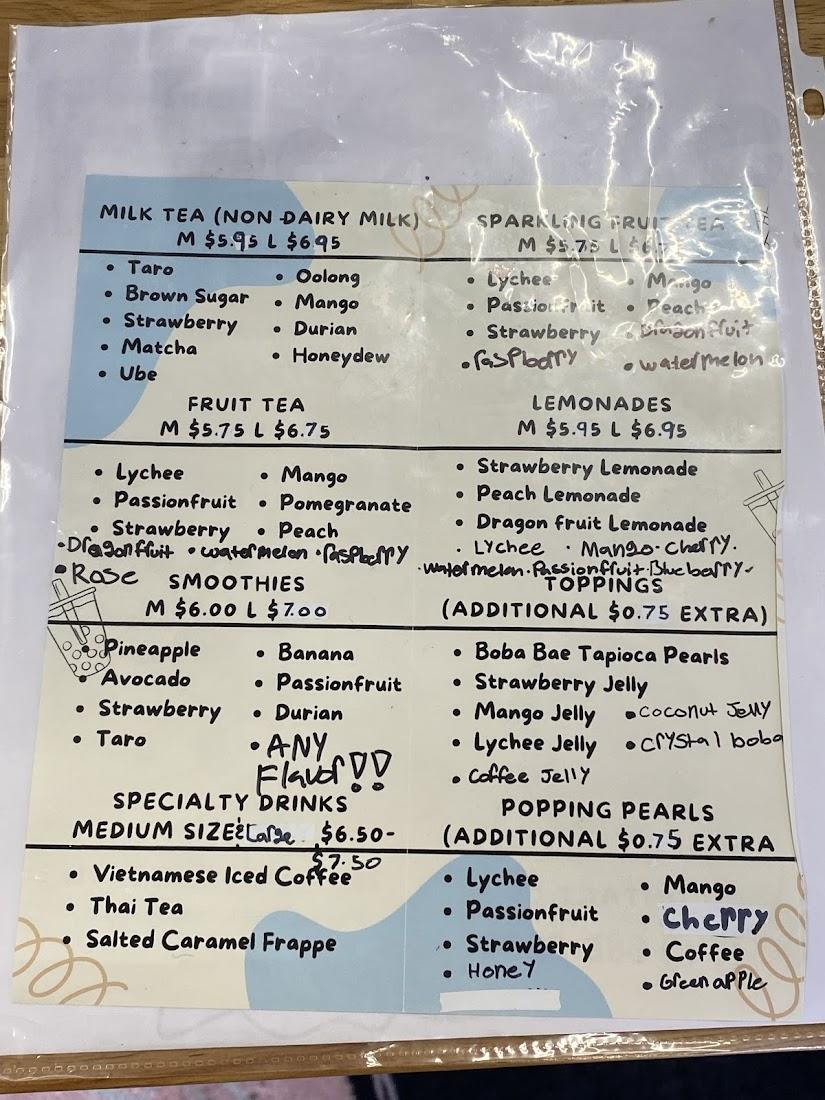 MILK TEA (NON DAIRY MILK)
M $5.95 L $6.95
• Taro
• Brown Sugar
• Strawberry
• Matcha
• Ube
• Oolong
• Mango
• Durian
• Honeydew
SPARKLING FRUIT TEA
M $5.75 L
• Lychee
• Passionfruit
• Strawberry
• raspberry
• Mango
• Peach
• Dragonfruit
• watermelon
FRUIT TEA
M $5.75 L $6.75
• Lychee
• Passionfruit
• Strawberry
• Mango
• Pomegranate
• Peach
• Dragonfruit • watermelon • raspberry
• Rose
LEMONADES
M $5.95 L $6.95
• Strawberry Lemonade
• Peach Lemonade
• Dragon fruit Lemonade
• Lychee • Mango • Cherry •
• watermelon • Passionfruit • Blueberry -
SMOOTHIES
M $6.00 L $7.00
• Pineapple
• Avocado
• Strawberry
• Taro
• Banana
• Passionfruit
• Durian
• ANY
Flavor!!
TOPPINGS
(ADDITIONAL $0.75 EXTRA)
• Boba Bae Tapioca Pearls
• Strawberry Jelly
• Mango Jelly
• Lychee Jelly
• Coffee Jelly
• coconut Jelly
• crystal boba
SPECIALTY DRINKS
MEDIUM SIZE & Large $6.50-
$7.50
• Vietnamese Iced Coffee
• Thai Tea
• Salted Caramel Frappe
POPPING PEARLS
(ADDITIONAL $0.75 EXTRA
• Lychee
• Passionfruit
• Strawberry
• Honey
• Mango
• Cherry
• Coffee
• Green apple